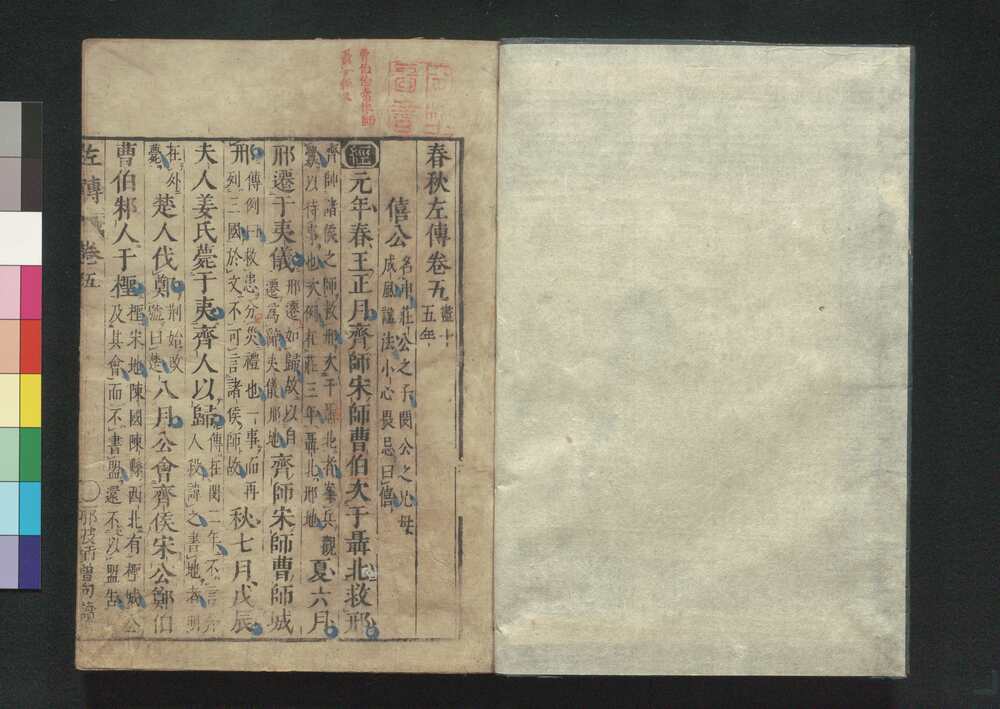 春秋左傳卷五
盡十
五年
僖公
名申莊公之子閔公之兄母
成風諡法小心畏忌曰僖
經元年春王正月齊師宋師曹伯次于聶北救邢
齊師諸侯之師救邢次于聶北者案兵觀
釁以待事也次例在莊三年聶北邢地
夏六月
邢遷于夷儀
邢遷如歸故以自
遷爲辭夷儀邢地
齊師宋師曹師城
邢
傳例曰救患分災禮也一事而再
列三國於文不可言諸侯師故
秋七月戊辰
夫人姜氏薨于夷齊人以歸
傳在閔二年不言齊
人殺諱之書地者明
在外
薨
楚人伐鄭
荊始改
號曰楚
八月公會齊侯宋公鄭伯
曹伯邾人于檉
檉宋地陳國陳縣西北有檉城公
及其會而不書盟還不以盟告
左傳 卷五
那波師曾句讀